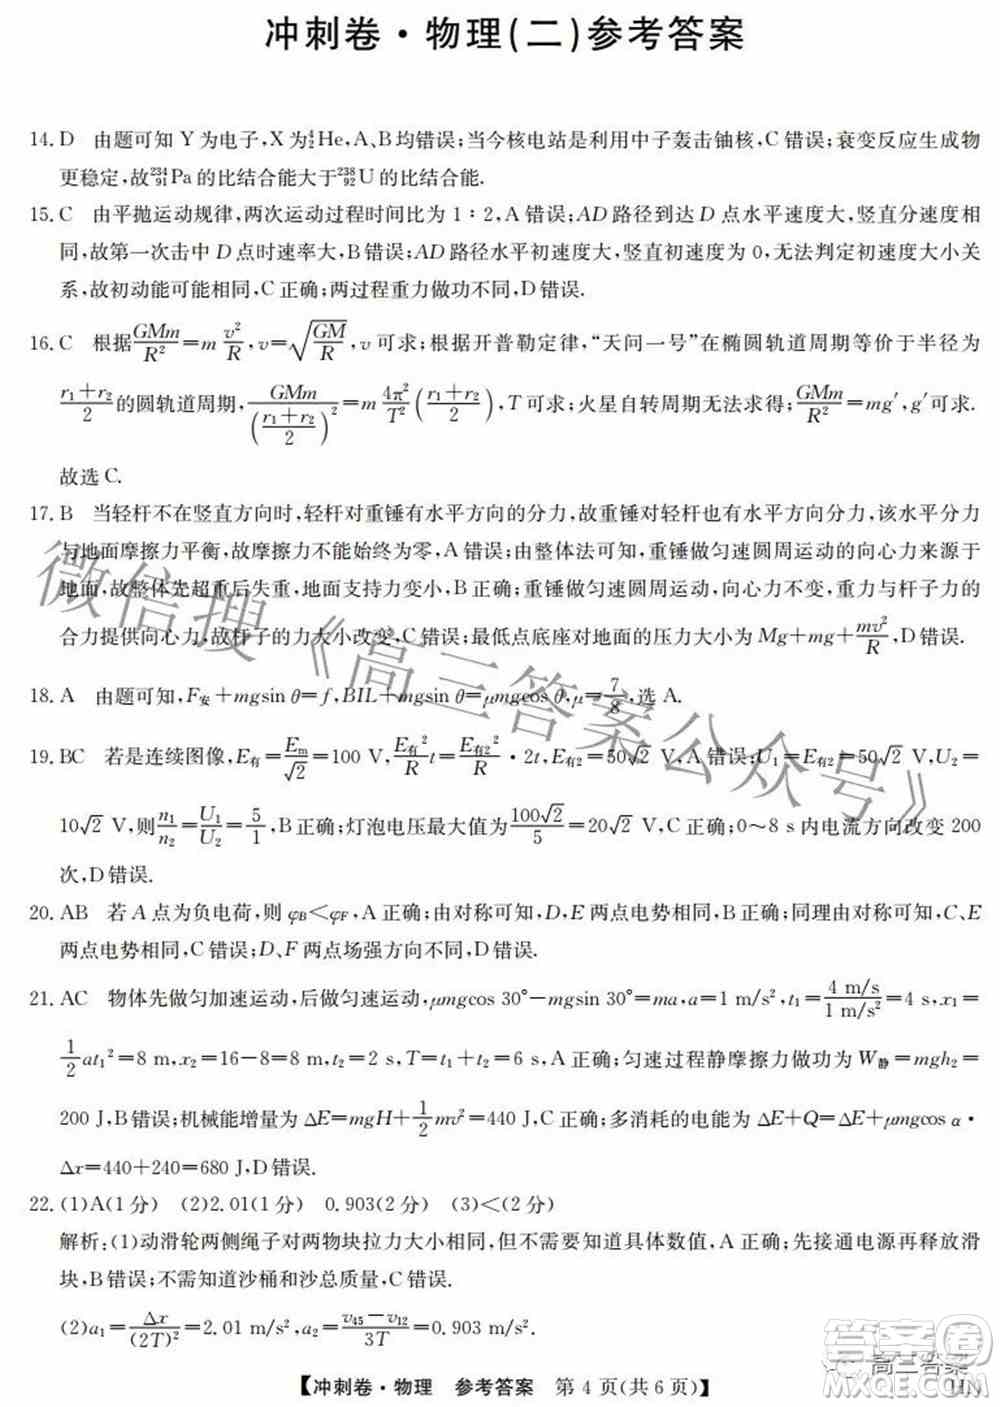 冲刺卷·物理(二)参考答案
14. D 由题可知 Y 为电子,X 为⁴₂He,A、B均错误;当今核电站是利用中子轰击铀核,C错误;衰变反应生成物
更稳定,故²³⁴₉₁Pa 的比结合能大于²³⁸₉₂U 的比结合能.
15. C 由平抛运动规律,两次运动过程时间比为 1∶2,A 错误;AD 路径到达 D 点水平速度大,竖直分速度相
同,故第一次击中 D 点时速率大,B 错误;AD 路径水平初速度大,竖直初速度为 0,无法判定初速度大小关
系,故初动能可能相同,C 正确;两过程重力做功不同,D错误.
16. C 根据GMm/R²=m v²/R,v=√(GM/R),v 可求;根据开普勒定律,“天问一号”在椭圆轨道周期等价于半径为
(r₁+r₂)/2的圆轨道周期,GMm/((r₁+r₂)/2)²=m 4π²/T²((r₁+r₂)/2),T 可求;火星自转周期无法求得;GMm/R²=mg′,g′可求.
故选 C.
17. B 当轻杆不在竖直方向时,轻杆对重锤有水平方向的分力,故重锤对轻杆也有水平方向分力,该水平分力
与地面摩擦力平衡,故摩擦力不可能始终为零,A 错误;由整体法可知,重锤做匀速圆周运动的向心力来源于
地面,故整体先超重后失重,地面支持力变小,B 正确;重锤做匀速圆周运动,向心力不变,重力与杆子力的
合力提供向心力,故杆子的力大小改变,C 错误;最低点底座对地面的压力大小为 Mg+mg+mv²/R,D错误.
18. A 由题可知,F安+mgsin θ=f,BIL+mgsin θ=μmgcos θ,μ=7/8,选 A.
19. BC 若是连续图像,E有=Em/√2=100 V,E有²/R t=E有2²/R·2t,E有2=50√2 V,A 错误;U₁=E有2=50√2 V,U₂=
10√2 V,则n₁/n₂=U₁/U₂=5/1,B正确;灯泡电压最大值为100√2/5=20√2 V,C 正确;0~8 s内电流方向改变 200
次,D错误.
20. AB 若 A 点为负电荷,则 φB<φF,A 正确;由对称可知,D,E 两点电势相同,B 正确;同理由对称可知,C、E
两点电势相同,C错误;D、F 两点场强方向不同,D错误.
21. AC 物体先做匀加速运动,后做匀速运动,μmgcos 30°-mgsin 30°=ma,a=1 m/s²,t₁=4 m/s/1 m/s²=4 s,x₁=
1/2at₁²=8 m,x₂=16-8=8 m,t₂=2 s,T=t₁+t₂=6 s,A 正确;匀速过程静摩擦力做功为 W静=mgh₂=
200 J,B错误;机械能增量为 ΔE=mgH+1/2mv²=440 J,C 正确;多消耗的电能为 ΔE+Q=ΔE+μmgcos α·
Δx=440+240=680 J,D错误.
22. (1)A(1分) (2)2.01(1分) 0.903(2分) (3)<(2分)
解析:(1)动滑轮两侧绳子对两物块拉力大小相同,但不需要知道具体数值,A 正确;先接通电源再释放滑
块,B错误;不需知道沙桶和沙总质量,C错误.
(2)a₁=Δx/(2T)²=2.01 m/s²,a₂=(v₄₅-v₁₂)/3T=0.903 m/s².
【冲刺卷·物理 参考答案 第 4 页(共 6 页)】
HN
微信搜《高三答案公众号》
高三答案
答案圈
MXQE.COM